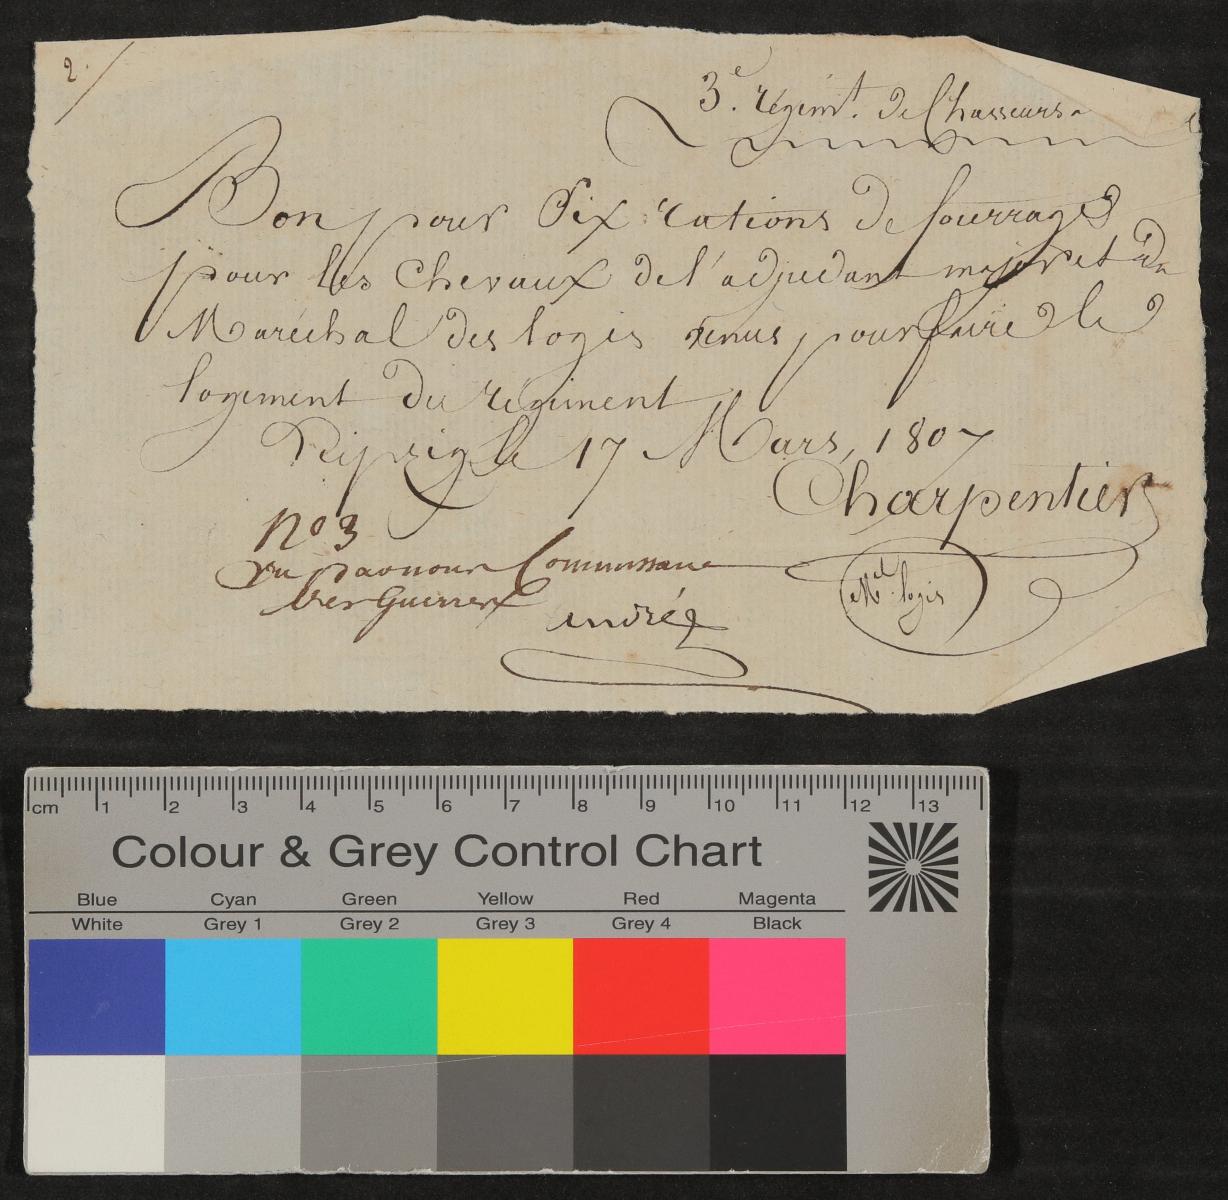 2.
3e. régimt. de Chasseurs
Bon pour Six rations de fourrages
pour les chevaux de l'adjudant major et du
Maréchal des logis venus pour faire le
logement du régiment
Leipzig le 17 Mars, 1807
Charpentier
no 3
Vu par nous Commissaire
des Guerres
André
Mal. logis
cm 1 2 3 4 5 6 7 8 9 10 11 12 13
Colour & Grey Control Chart
Blue Cyan Green Yellow Red Magenta
White Grey 1 Grey 2 Grey 3 Grey 4 Black